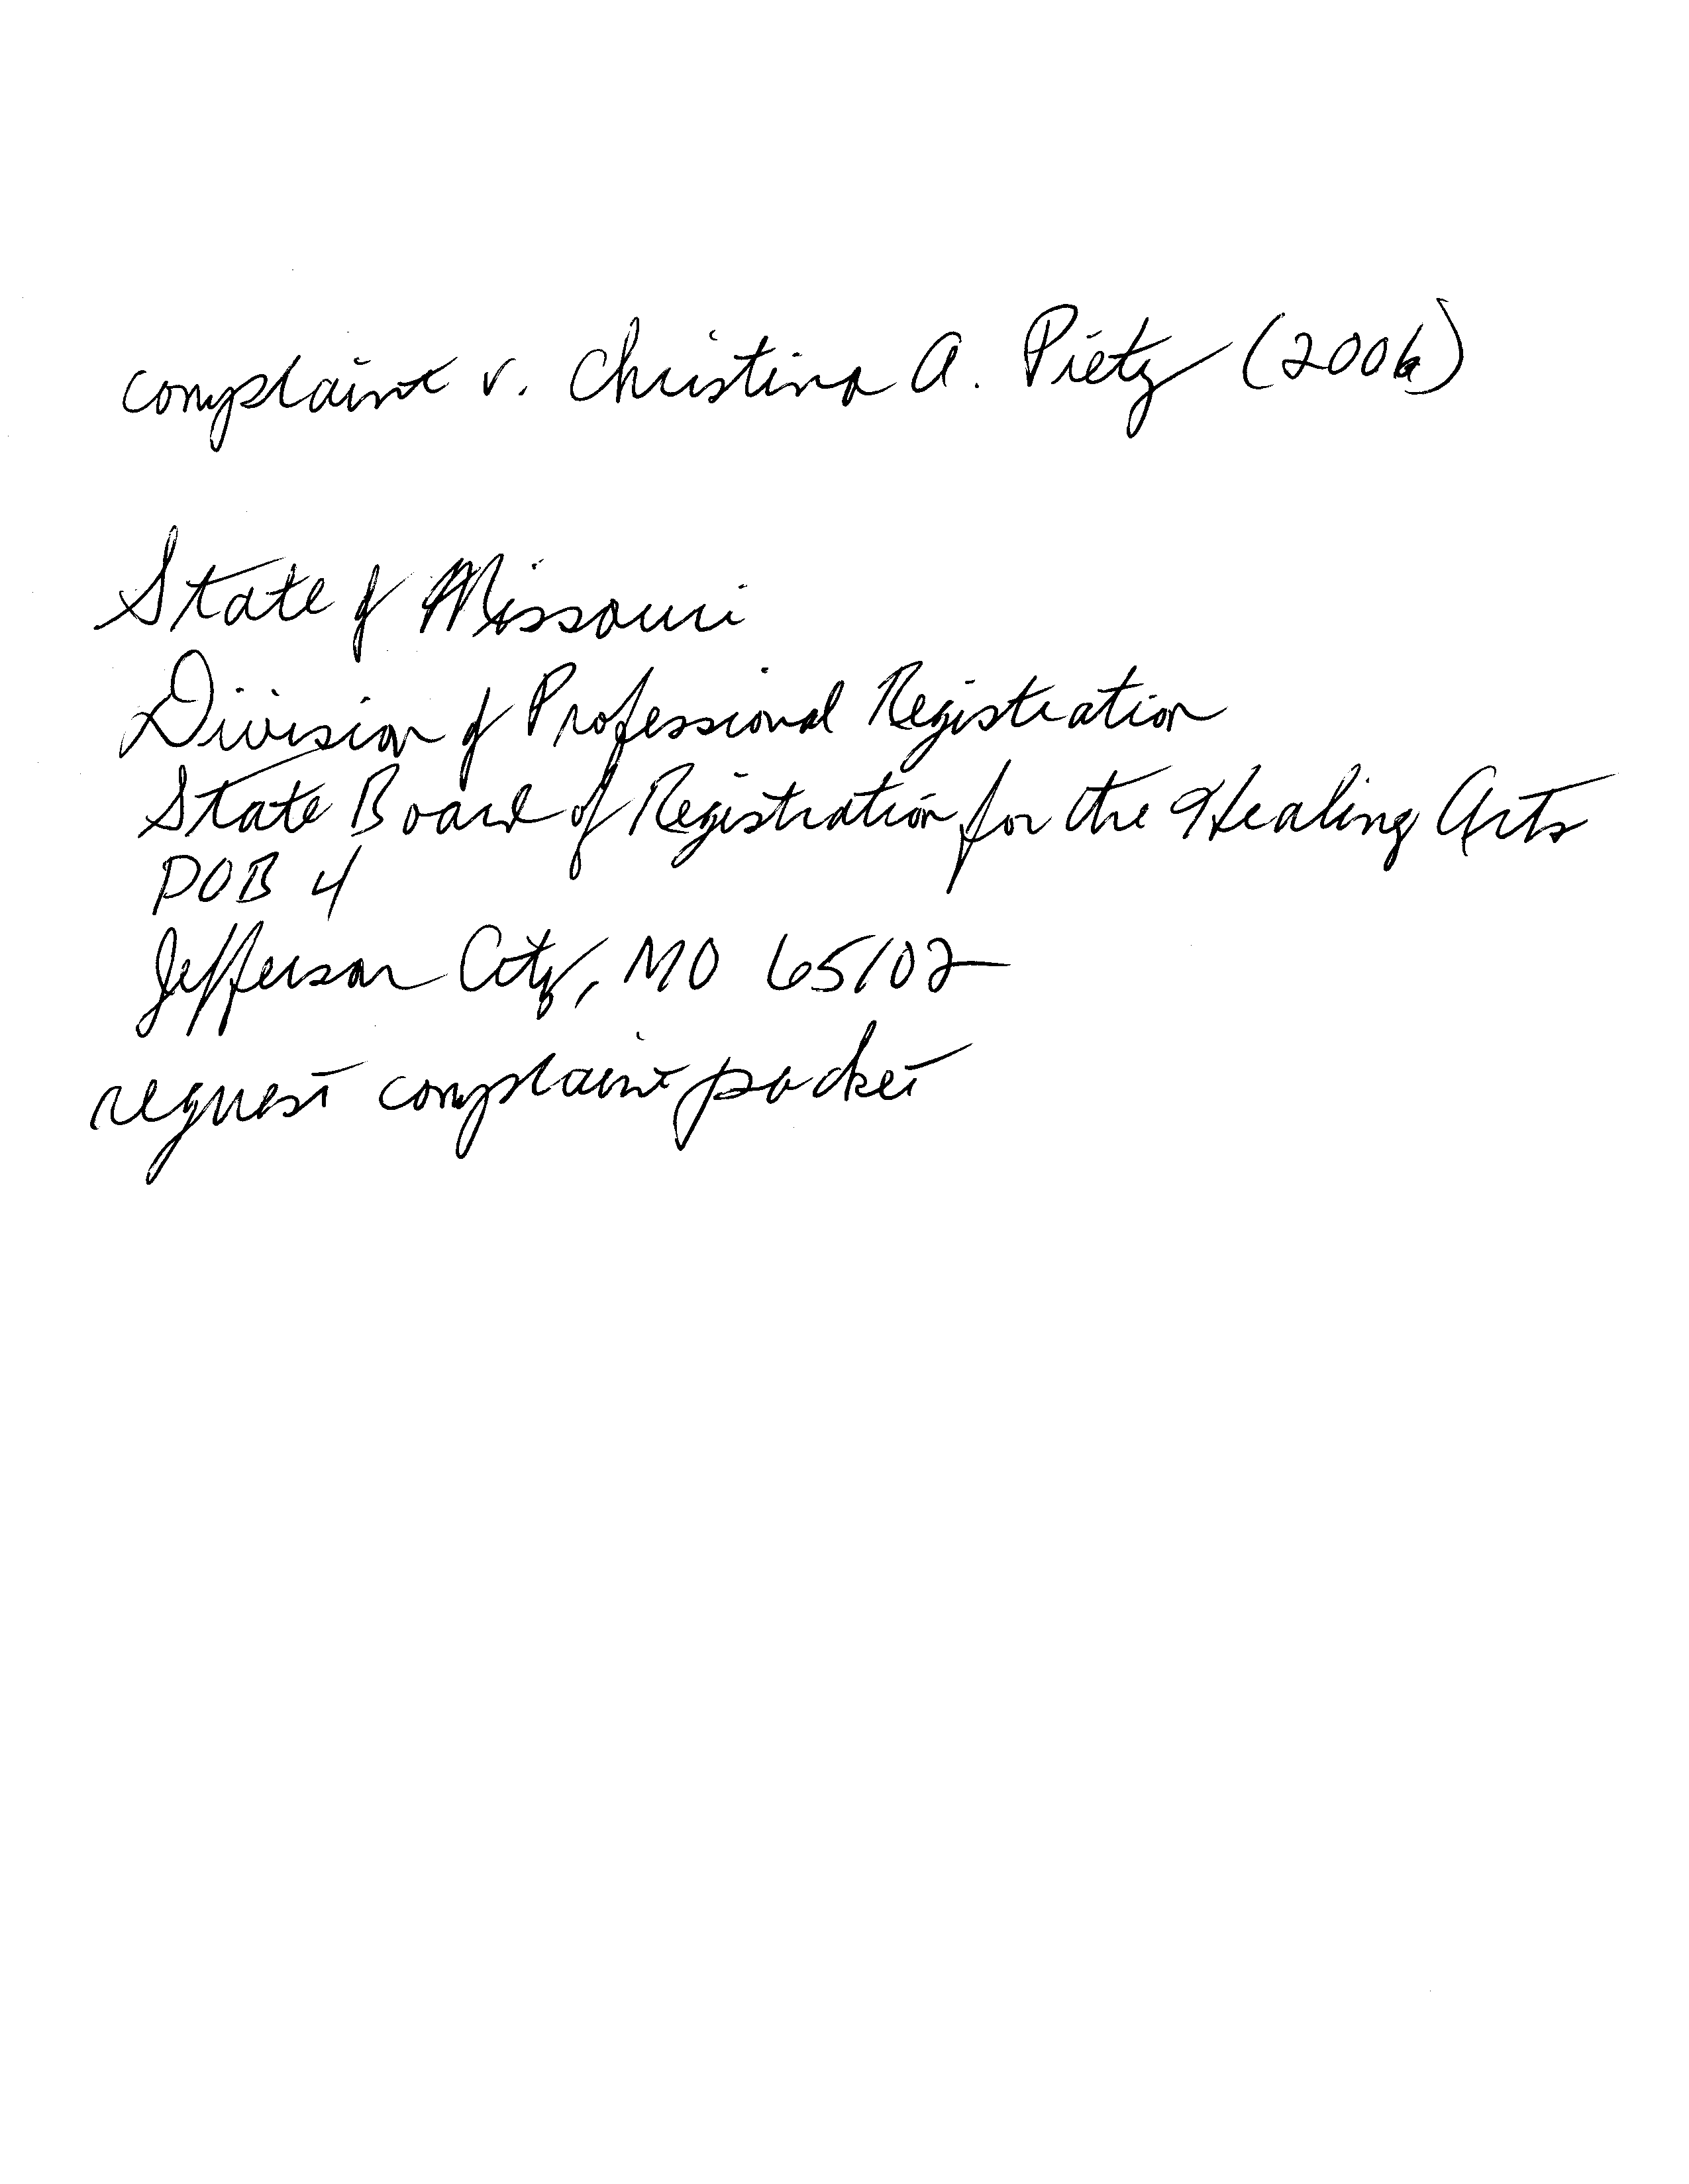 complaint v. Christina A. Pietz (2006)
State of Missouri
Division of Professional Registration
State Board of Registration for the Healing Arts
POB 4
Jefferson City, MO 65102
request complaint packet